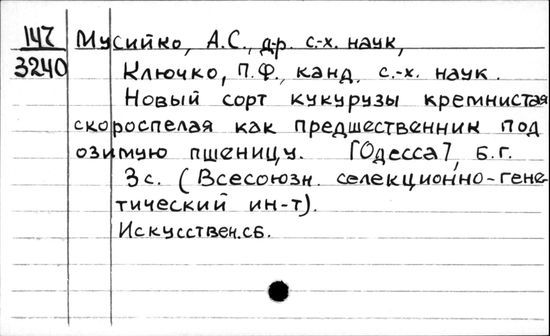 147 Мусийко, А.С., д-р. с.-х. наук,
3240 Ключко, П.Ф., канд. с.-х. наук.
Новый сорт кукурузы кремнистая
скороспелая как предшественник под
озимую пшеницу. [Одесса], б.г.
3с. (Всесоюзн. селекционно-гене-
тический ин-т).
Искусствен.сб.